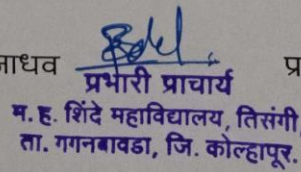 नाधव प्र
प्रभारी प्राचार्य
म. ह. शिंदे महाविद्यालय, तिसंगी
ता. गगनबावडा, जि. कोल्हापूर.